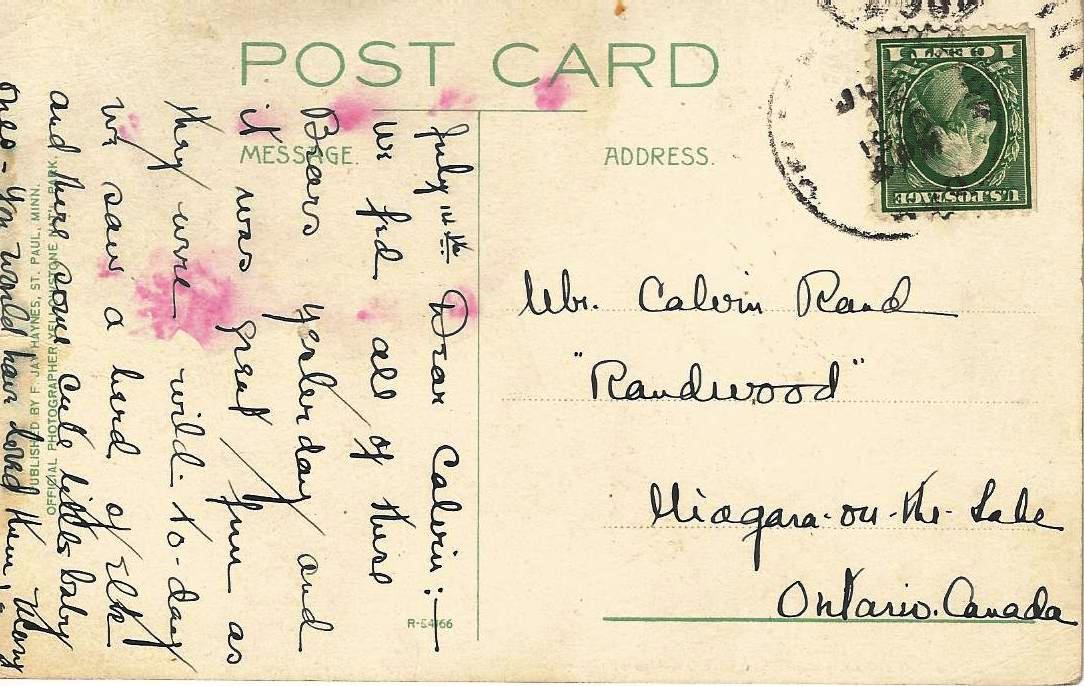 POST CARD
MESSAGE.
ADDRESS.
July 14th Dear Calvin:—
We fed all of these
Bears yesterday and
it was great fun as
they were wild. To-day
we saw a herd of Elk
and there some cute little baby
ones - You would have loved them. Mary
Mr. Calvin Rand
"Randwood"
Niagara-on-the-Lake
Ontario. Canada
PUBLISHED BY F. JAY HAYNES, ST. PAUL, MINN.
OFFICIAL PHOTOGRAPHER YELLOWSTONE NAT'L PARK.
R-54166
U.S. POSTAGE
1 1